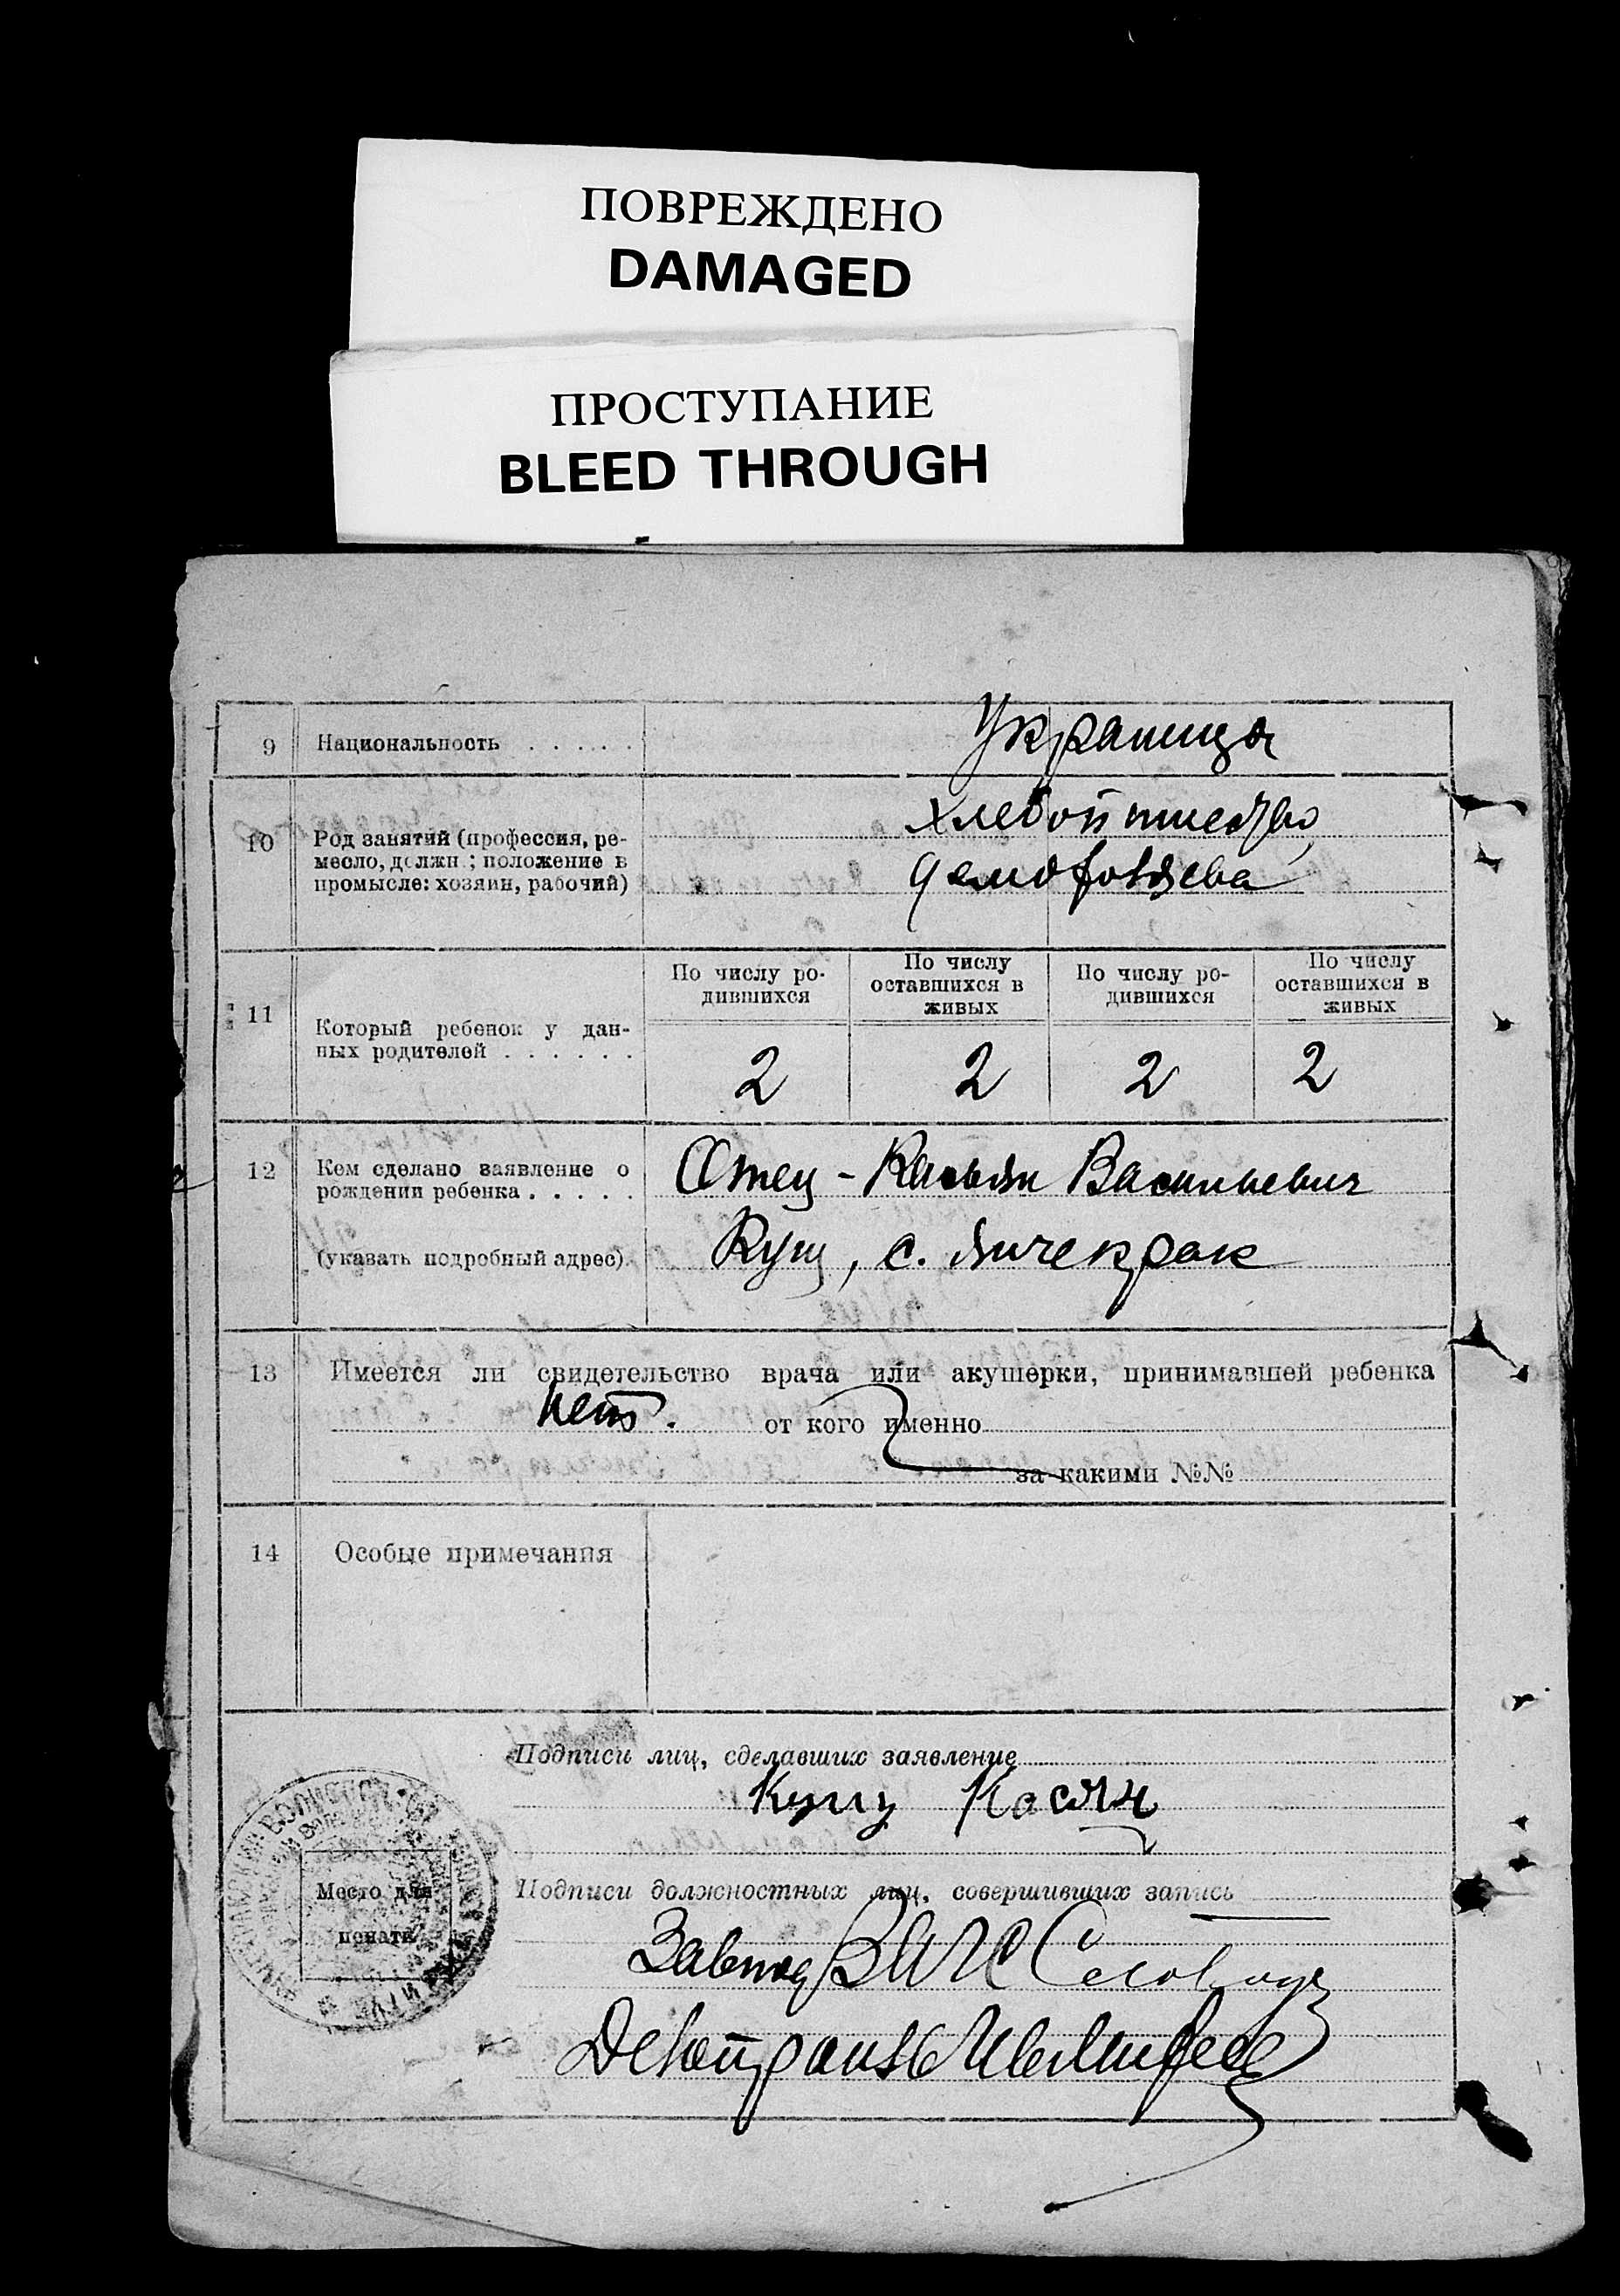 ПОВРЕЖДЕНО
DAMAGED
ПРОСТУПАНИЕ
BLEED THROUGH
9 Национальность . . . . . Украинца
10 Род занятий (профессия, ре-
месло, должн.; положение в
промысле: хозяин, рабочий)
хлебопашество,
11 Который ребенок у дан-
ных родителей . . . . . .
По числу ро-
дившихся
По числу
оставшихся в
живых
По числу ро-
дившихся
По числу
оставшихся в
живых
2 2 2 2
12 Кем сделано заявление о
рождении ребенка . . . . .
(указать подробный адрес)
Отец - Касьян Васильевич
Кущ, с. Янчекрак
13 Имеется ли свидетельство врача или акушерки, принимавшей ребенка
нет. от кого именно
за какими №№
14 Особые примечания
Подписи лиц, сделавших заявление
Кущ Касян
Место для
печати
Подписи должностных лиц, совершивших запись